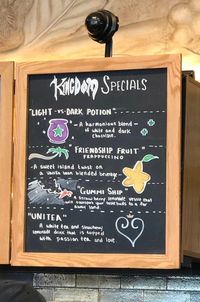 KINGDOM SPECIALS
"LIGHT -VS- DARK POTION"
- A harmonious blend
of white and dark
chocolate.
"FRIENDSHIP FRUIT"
FRAPPUCCINO
- A sweet island twist on
a vanilla bean blended beverage
"GUMMI SHIP"
A strawberry lemonade
that
transports your taste buds to a far
away land
"UNITEA"
A white tea and strawberry
lemonade drink that is topped
with passion tea and love.